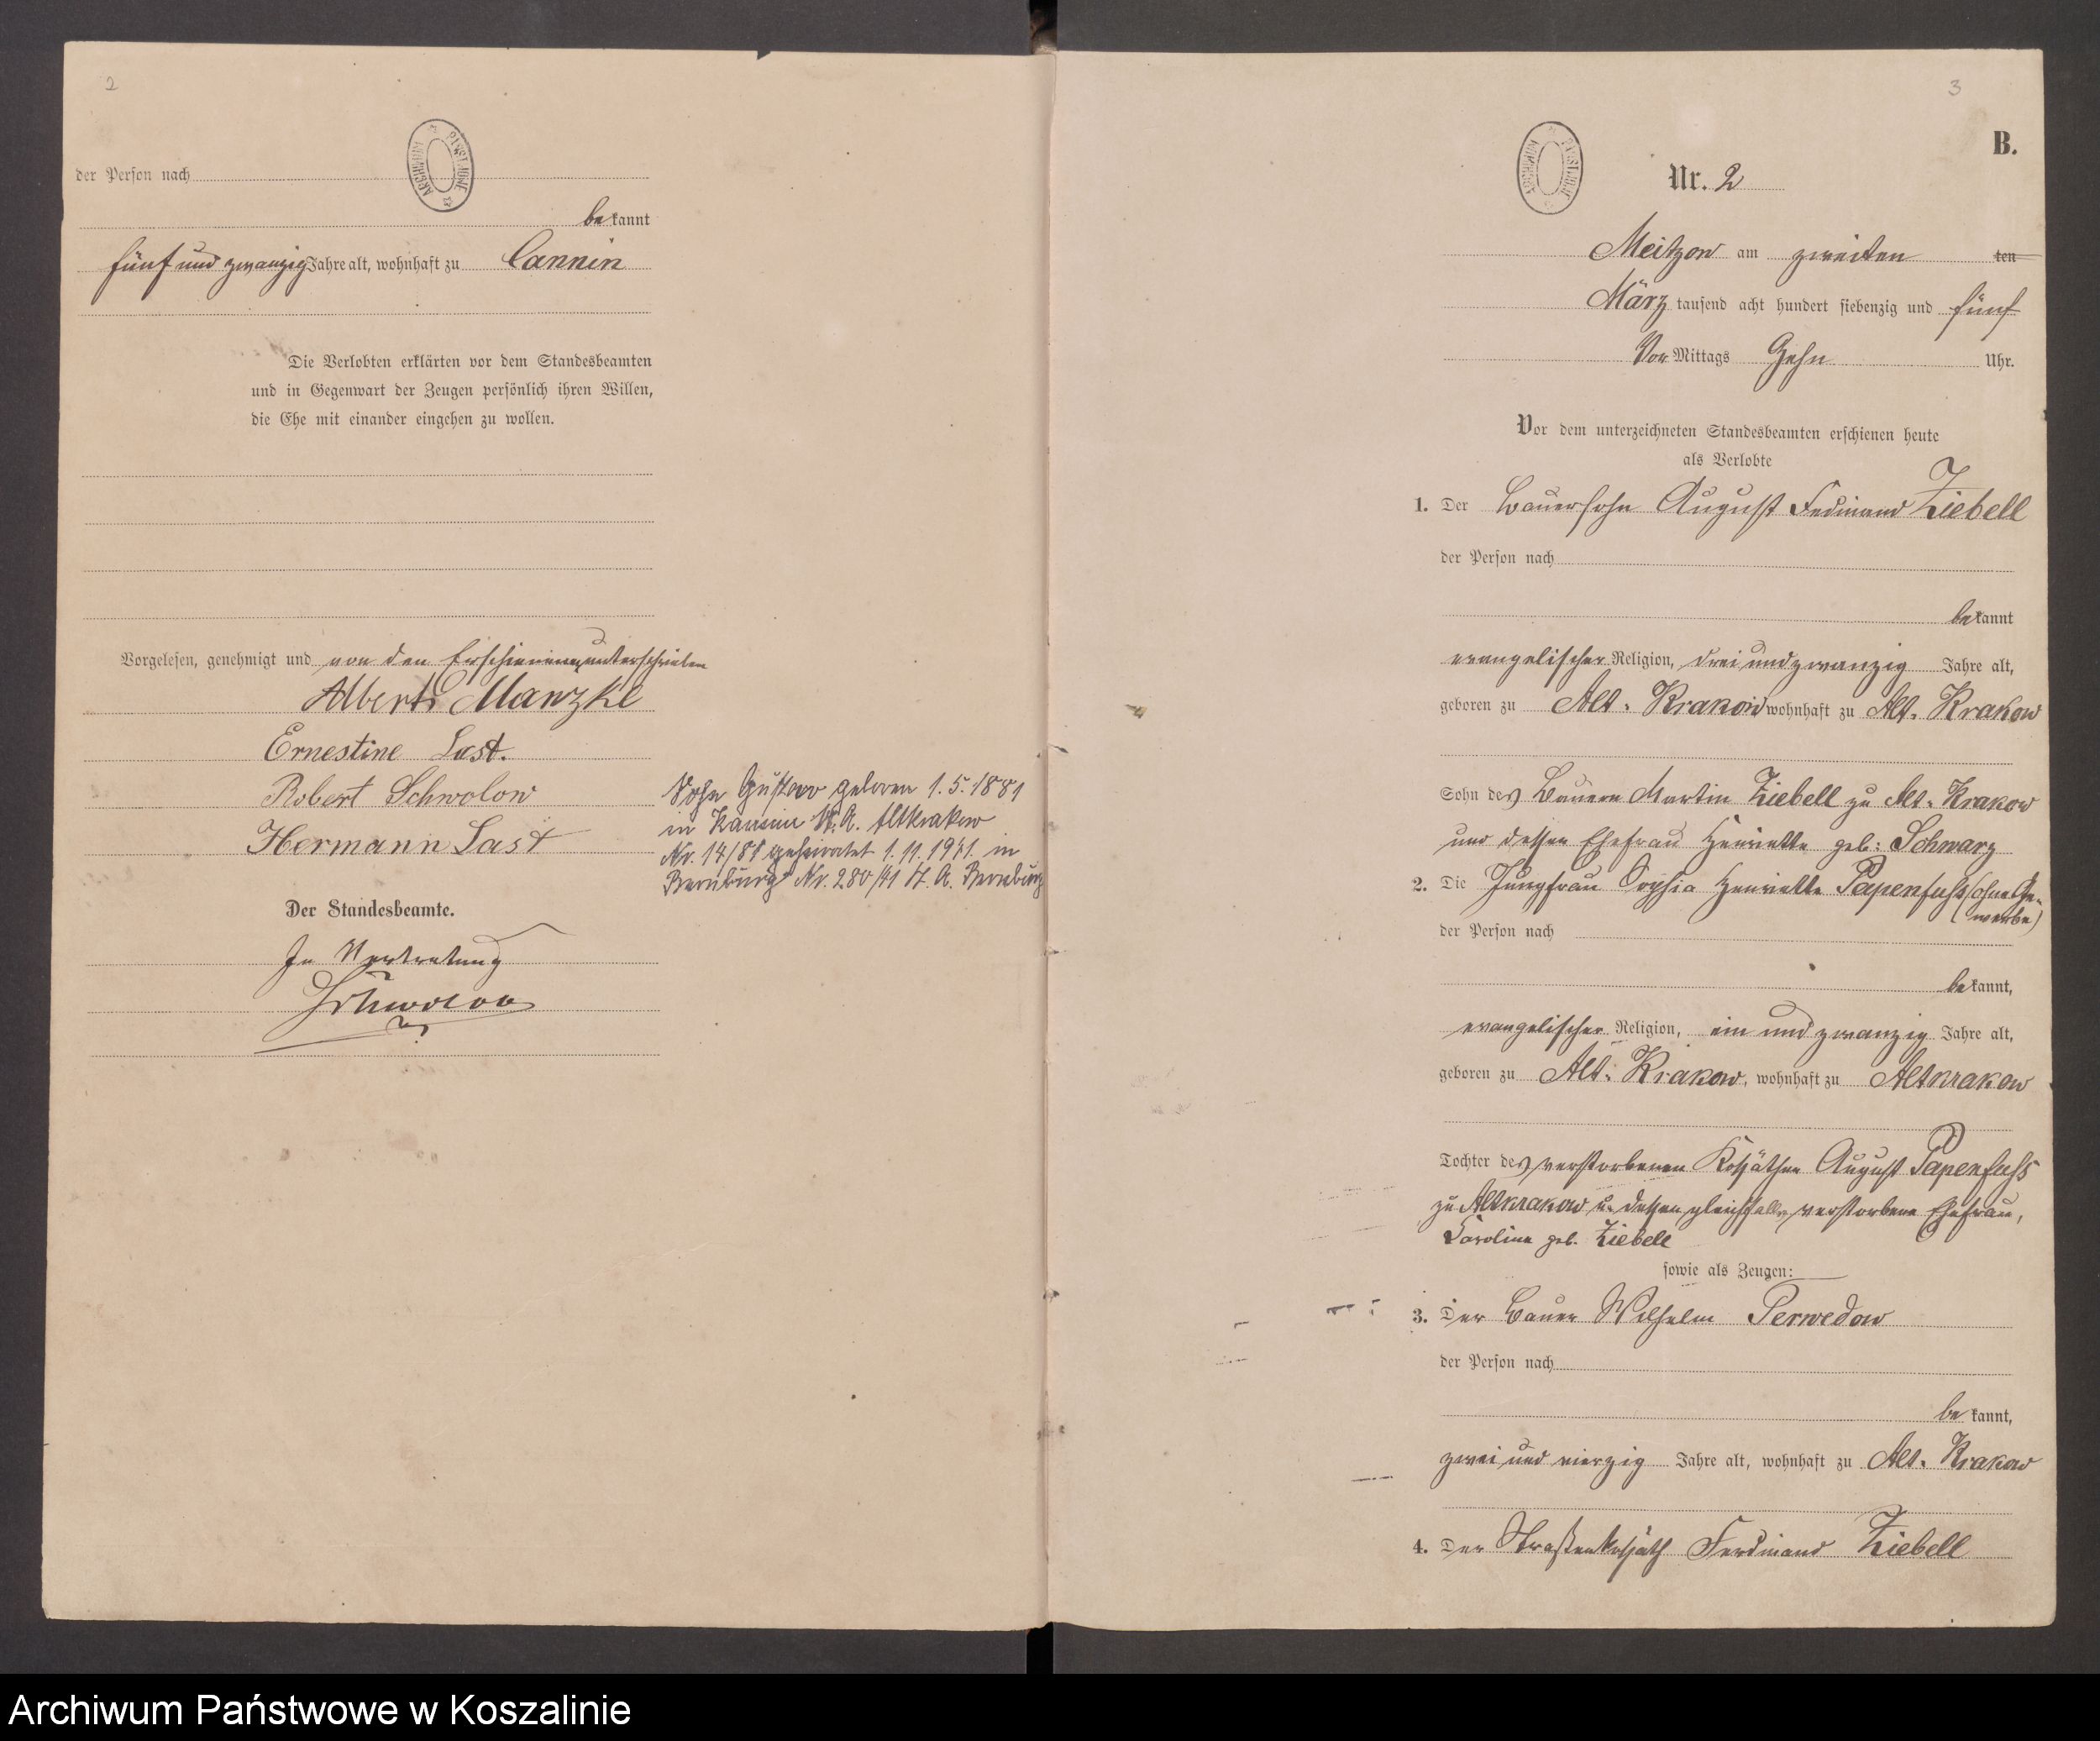 2
ARCHIWUM PAŃSTWOWE
der Person nach
bekannt
fünf und zwanzig Jahre alt, wohnhaft zu Cannin
Die Verlobten erklärten vor dem Standesbeamten
und in Gegenwart der Zeugen persönlich ihren Willen,
die Ehe mit einander eingehen zu wollen.
Vorgelesen, genehmigt und von den Erschienenen unterschrieben
Albert Manzke
Ernestine Last.
Robert Schwolow
Hermann Last
Sohn Gustav geboren 1.5.1881
in Kannin St. A. Altkrakow
Nr. 14/81 geheiratet 1.11.1941 in
Bernburg Nr. 280/41 St. A. Bernburg
Der Standesbeamte.
In Vertretung
Schwolow
3
ARCHIWUM PAŃSTWOWE
B.
Nr. 2
Meitzow am zweiten ten
März tausend acht hundert siebenzig und fünf
Vor Mittags Zehn Uhr.
Vor dem unterzeichneten Standesbeamten erschienen heute
als Verlobte
1. Der Bauersohn August Fedinand Ziebell
der Person nach
bekannt
evangelischer Religion, drei und zwanzig Jahre alt,
geboren zu Alt-Krakow wohnhaft zu Alt-Krakow
Sohn des Bauern Martin Ziebell zu Alt-Krakow
und dessen Ehefrau Henriette geb: Schwarz
2. Die Jungfrau Sophia Henriette Papenfuhs (ohne Ge-
werbe)
der Person nach
bekannt,
evangelischer Religion, ein und zwanzig Jahre alt,
geboren zu Alt-Krakow, wohnhaft zu Altkrakow
Tochter des verstorbenen Koßäthen August Papenfuhs
zu Altkrakow u. dessen gleichfalls verstorbene Ehefrau,
Caroline geb. Ziebell
sowie als Zeugen:
3. Der Bauer Wilhelm Perwedow
der Person nach
bekannt,
zwei und vierzig Jahre alt, wohnhaft zu Alt-Krakow
4. Der Straßenkoßäth Ferdinand Ziebell
Archiwum Państwowe w Koszalinie